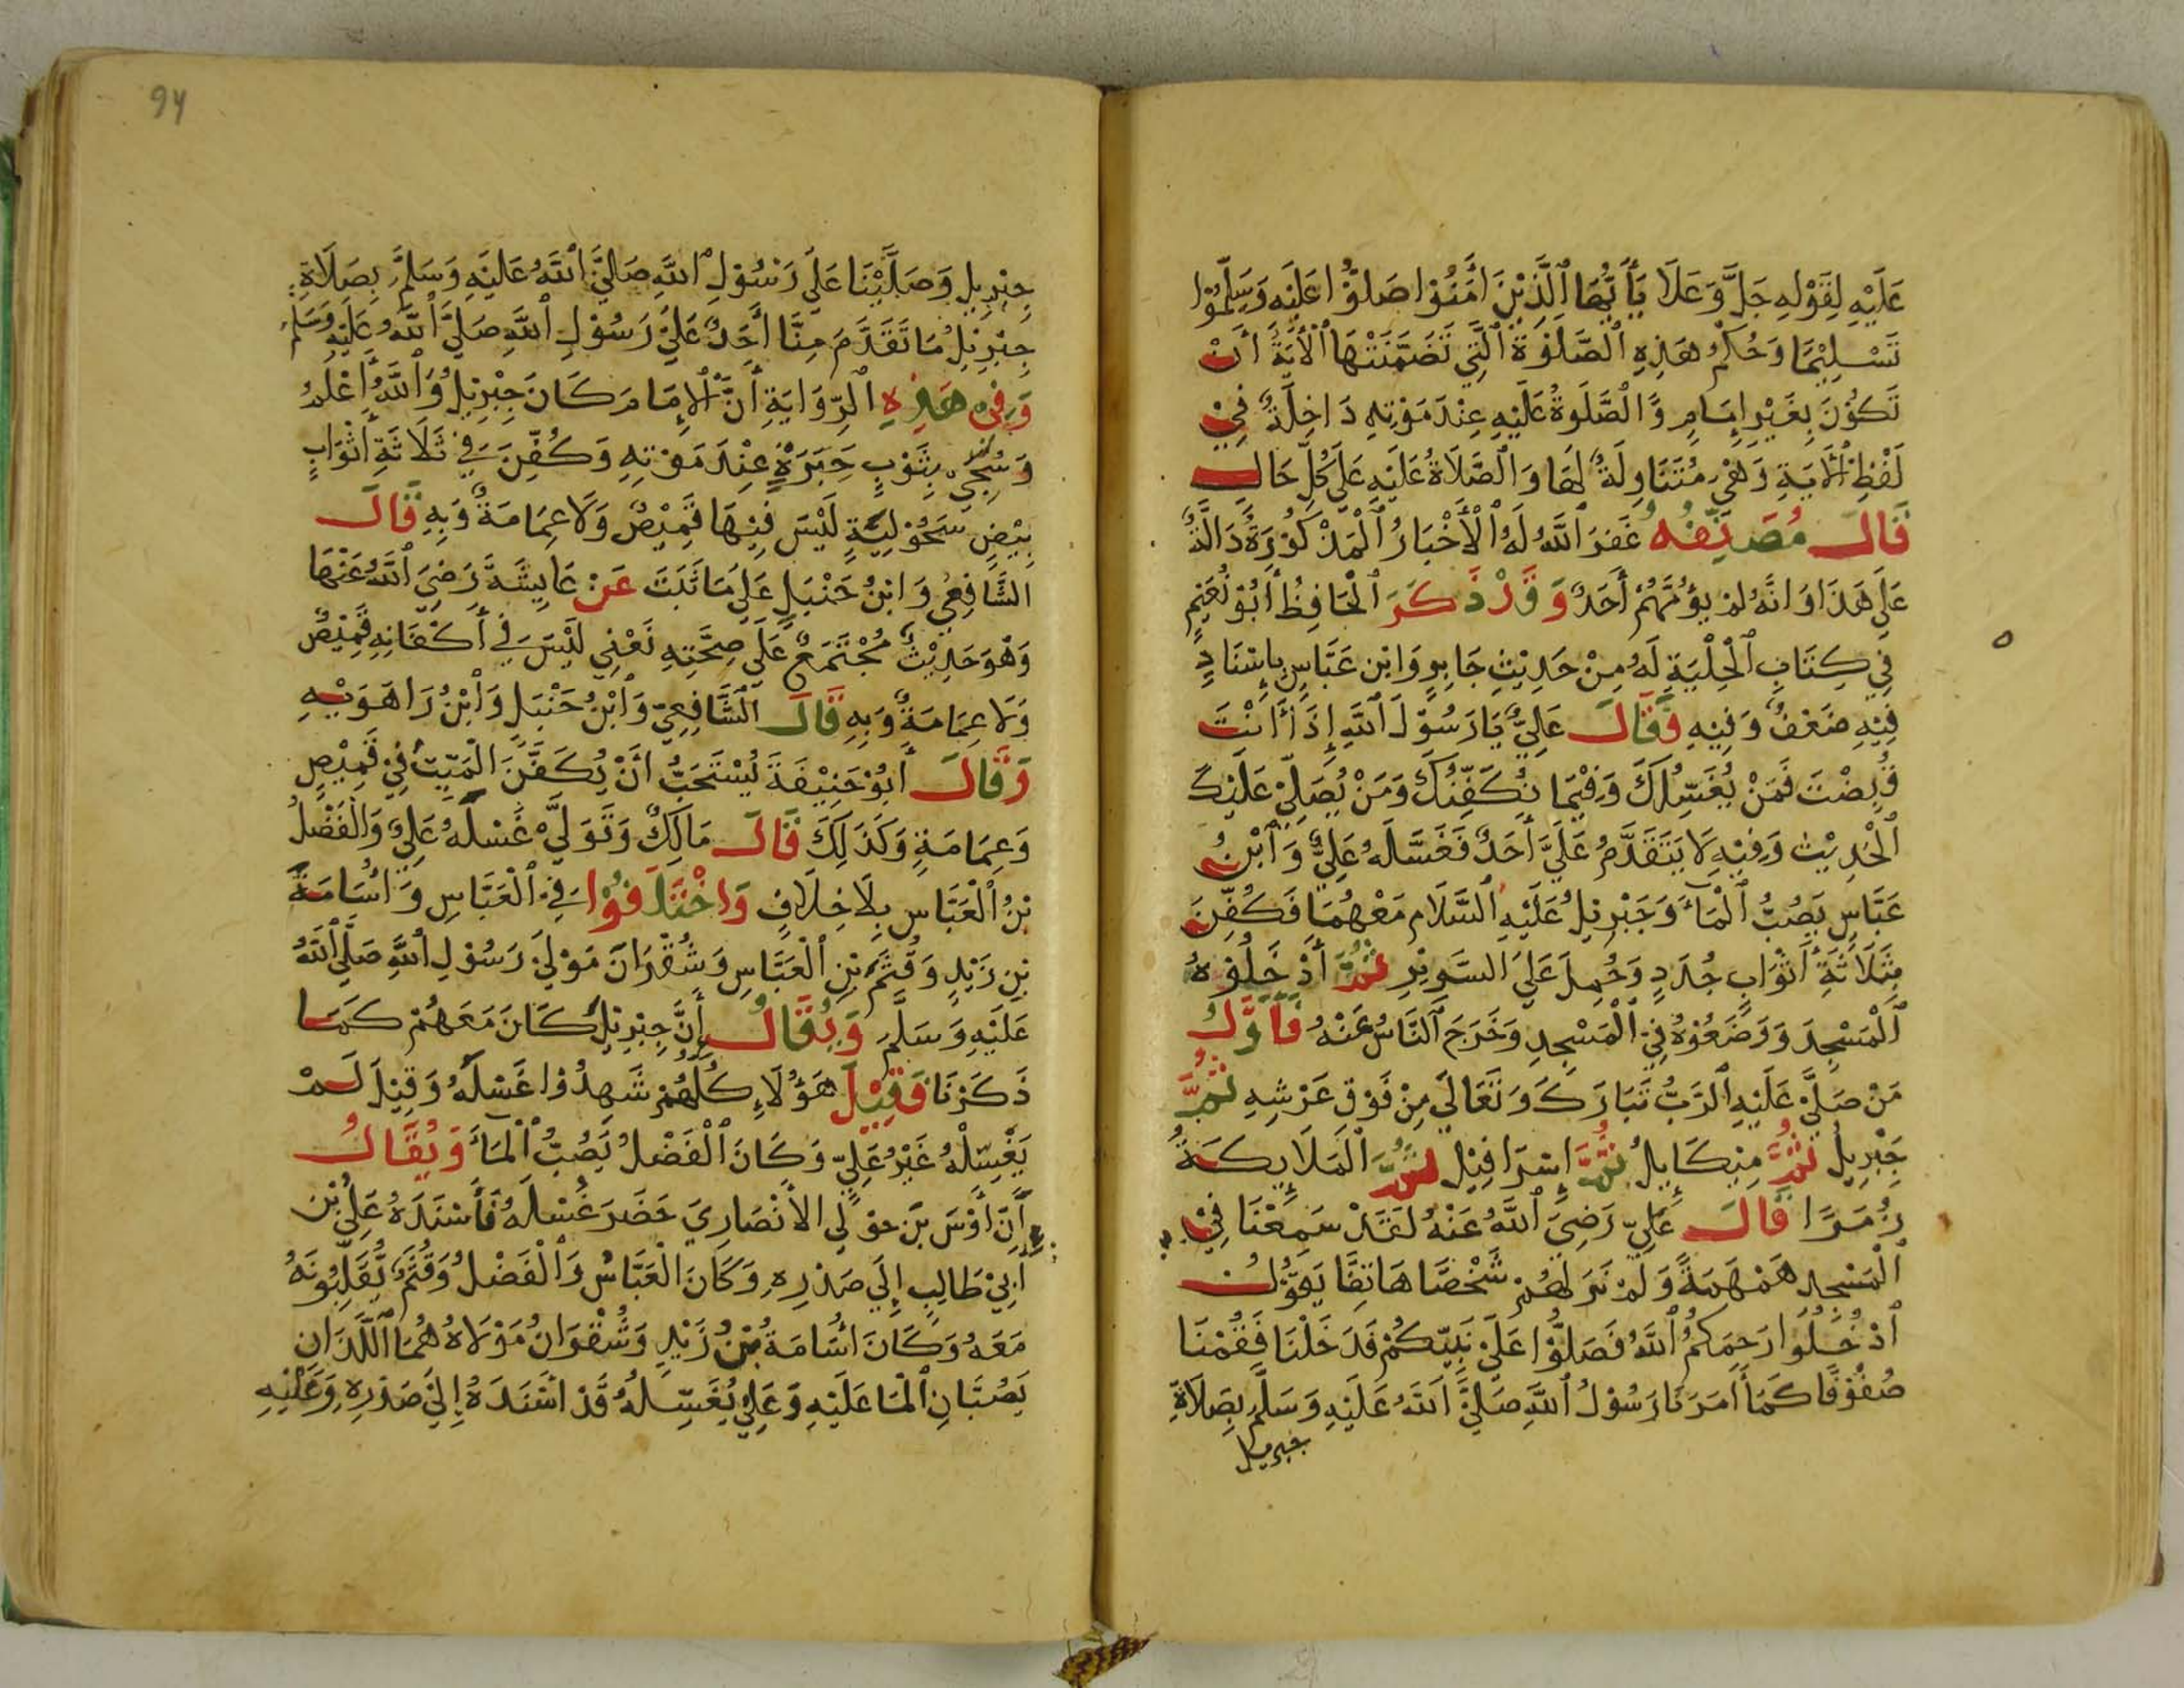 عَلَيْهِ لِقَوْلِهِ جَلَّ وَعَلَا يَأَيُّهَا ٱلَّذِيْنَ اٰمَنُوْا صَلُّوْا عَلَيْهِ وَسَلِّمُوْا
تَسْلِيْمًا وَحُكْمُ هَذِهِ ٱلصَّلٰوةِ ٱلَّتِي تَضَمَّنَتْهَا ٱلْأٰيَةُ أَنْ
تَكُوْنَ بِغَيْرِ إِمَامٍ وَالصَّلَوةُ عَلَيْهِ عِنْدَ مَوْتِهِ دَاخِلَةٌ فِيْ
لَفْظِ ٱلْأَيَةِ وَهْيَ مُتَنَاوِلَةٌ لَهَا وَالصَّلَاةُ عَلَيْهِ عَلَى كُلِّ حَالٍ
قَالَ مُصَنِّفُهُ غَفَرَ ٱللَّهُ لَهُ ٱلْأَخْبَارُ ٱلْمَذْكُوْرَةُ دَالَّةٌ
عَلَى هَذَا وَانَّهُ لَمْ يَؤُمَّهُمْ أَحَدٌ وَقَدْ ذَكَرَ ٱلْحَافِظُ أَبُوْ نُعَيْمٍ
فِي كِتَابِ ٱلْحِلْيَةِ لَهُ مِنْ حَدِيْثِ جَابِرٍ وَابْنِ عَبَّاسٍ بِإِسْنَادٍ
فِيْهِ ضَعْفٌ وَفِيْهِ فَقَالَ عَلِيٌّ يَا رَسُوْلَ ٱللَّهِ إِذَا أَنْتَ
قُبِضْتَ فَمَنْ يُغَسِّلُكَ وَفِيْمَا نُكَفِّنُكَ وَمَنْ يُصَلِّيْ عَلَيْكَ
ٱلْحَدِيْث وَفِيْهِ لَا يَتَقَدَّمُ عَلَيَّ أَحَدٌ فَغَسَّلَهُ عَلِيٌّ وَٱبْنُ
عَبَّاسٍ يَصُبُّ ٱلْمَاءَ وَجَبْرِيْلُ عَلَيْهِ ٱلسَّلَام مَعْهُمَا فَكُفِّنَ
بِثَلَاثَةِ أَثْوَابٍ جُدَدٍ وَحُمِلَ عَلَى السَّرِيْرِ ثُمَّ أَدْخَلُوْهُ
ٱلْمَسْجِدَ وَوَضَعُوْهُ فِيْ ٱلْمَسْجِدِ وَخَرَجَ ٱلنَّاسُ عَنْهُ فَأَوَّلُ
مَنْ صَلَّىْ عَلَيْهِ ٱلرَّبُّ تَبَارَكَ وَتَعَالَى مِنْ فَوْقِ عَرْشِهِ ثُمَّ
جَبْرِيلُ ثُمَّ مِيْكَايِلُ ثُمَّ إِسْرَافِيْل ثُمَّ ٱلْمَلَايِكَةُ
زُمَرًا قَالَ عَلِيّ رَضِيَ ٱللَّهُ عَنْهُ لَقَدْ سَمِعْنَا فِيْ
ٱلْمَسْجِد هَمْهَمَةً وَلَمْ نَرَ لَهُمْ شَخْصًا هَاتِفًا يَقُوْلُ
ٱدْخُلُوا رَحِمَكُمُ ٱللَّهُ فَصَلُّوْا عَلَى نَبِيِّكُمْ فَدَخَلْنَا فَقُمْنَا
صُفُوْفًا كَمَا أَمَرَنَا رَسُوْلُ ٱللَّهِ صَلَّىَ ٱللَّهُ عَلَيْهِ وَسَلَّمَ بِصَلَاةِ
جبريل
94
جِبْرِيلِ وَصَلَّيْنَا عَلَى رَسُوْلِ ٱللَّهِ صَلَىَّ ٱللَّهُ عَلَيْهِ وَسَلَّمَ بِصَلَاةِ
جِبْرِيْلِ مَا تَقَدَّمَ مِنَّا أَحَدٌ عَلَى رَسُوْلِ ٱللَّهِ صَلَىَّ ٱللَّهُ عَلَيْهِ وَسَلَّمَ
وَفِيْ هَذِهِ ٱلرِّوَايَةِ أَنَّ ٱلْإِمَامَ كَانَ جِبْرِيْلُ وَٱللَّهُ أَعْلَمُ
وَسُجِّيَ بِثَوْبِ حَبَرَةٍ عِنْدَ مَوْتِهِ وَكُفِّنَ فِي ثَلَاثَةِ أَثْوَابٍ
بِيْضٍ سَحُوْلِيَّةٍ لَيْسَ فِيْهَا قَمِيْصٌ وَلَا عِمَامَةٌ وَبِهِ قَالَ
الشَّافِعِيُ وَابْنُ حَنْبَلٍ عَلَى مَا ثَبَتَ عَنْ عَايِشَةَ رَضِيَ ٱللَّهُ عَنْهَا
وَهْوَ حَدِيْثٌ مُجْتَمَعٌ عَلَى صِحَّتِهِ نَعْنِي لَيْسَ فِي أَكْفَانِهِ قَمِيْصٌ
وَلَا عِمَامَةٌ وَبِهِ قَالَ ٱلشَّافِعِيّ وَٱبْنُ حَنْبَلٍ وَٱبْنُ رَاهَوَيْهِ
وَقَالَ أَبُوْ حَنِيْفَةَ يُسْتَحَبُّ أَنْ يُكَفَّنَ الْمَيِّتُ فِيْ قَمِيْصٍ
وَعِمَامَةٍ وَكَذَلِكَ قَالَ مَالِكٌ وَتَوَلَّىْ غُسْلَهُ عَلِيٌ وَالْفَضْلُ
بْنُ ٱلْعَبَّاسِ بِلَا خِلَافٍ وَاخْتَلَفُوْا فِي ٱلْعَبَّاسِ وَاُسَامَةَ
بْنِ زَيْدٍ وَقُثَمَ بْنِ ٱلْعَبَّاسِ وَشُقْرَانَ مَوْلَى رَسُوْلِ ٱللَّهِ صَلَّى ٱللَّهُ
عَلَيْهِ وَسَلَّمَ وَيُقَالُ إِنَّ جِبْرِيْلَ كَانَ مَعَهُمْ كَمَا
ذَكَرْنَا فَقِيْلَ هَؤُلَاءِ كُلُّهُمْ شَهِدُوْا غَسْلَهُ وَقِيْلَ لَمْ
يَغْسِلْهُ غَيْرُ عَلِيّ وَكَانَ ٱلْفَضْلُ يَصُبُّ ٱلْمَاءَ وَيُقَالُ
أَنَّ أَوْسَ بْنَ خَوْلِي الْأَنْصَارِيَ حَضَرَ غُسْلَهُ فَأَسْنَدَهُ عَلِيُ بْنُ
ابِيْ طَالِبٍ إِلَى صَدْرِهِ وَكَانَ الْعَبَّاسُ وَٱلْفَضْلُ وَقُثَمُ يُقَلِّبُونَهُ
مَعَهُ وَكَانَ اُسَامَةُ بْنُ زَيْدٍ وَشُقْرَانُ مَوْلَاهُ هُمَا ٱللَّذَانِ
يَصُبَّانِ ٱلْمَا عَلَيْهِ وَعَلِيٌ يُغَسِّلُهُ قَدْ اَسْنَدَهُ إِلَىْ صَدْرِهِ وَعَلَيْهِ